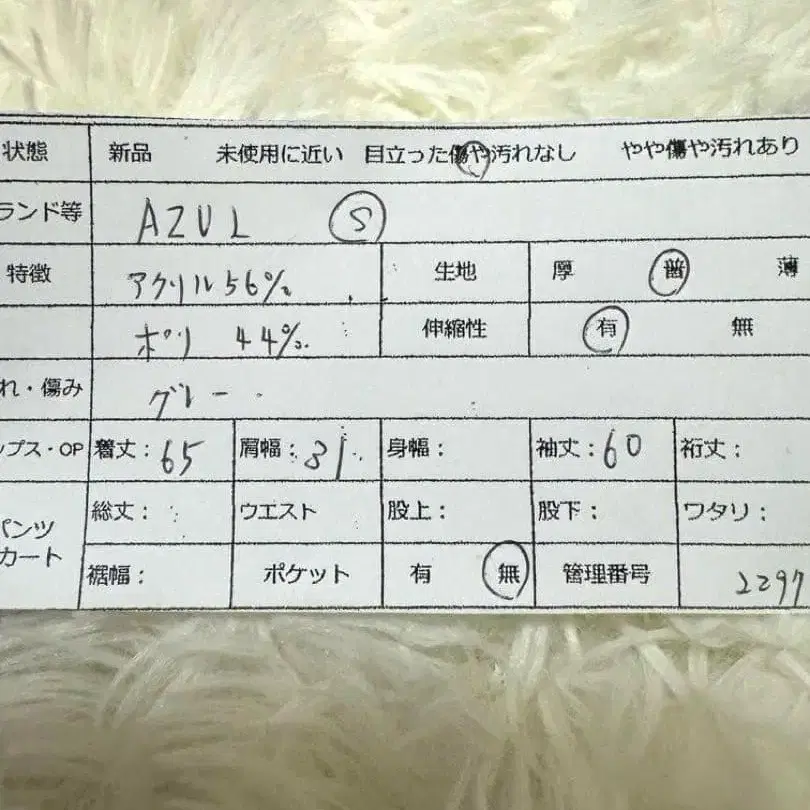 状態 新品 未使用に近い 目立った傷や汚れなし やや傷や汚れあり
ランド等 AZUL S
特徴 アクリル56% 生地 厚 普 薄
ポリ 44%. 伸縮性 有 無
れ・傷み グレー
ップス・OP 着丈: 65 肩幅: 31 身幅: 袖丈: 60 裄丈:
パンツ 総丈: ウエスト 股上: 股下: ワタリ:
カート 裾幅: ポケット 有 無 管理番号 2297